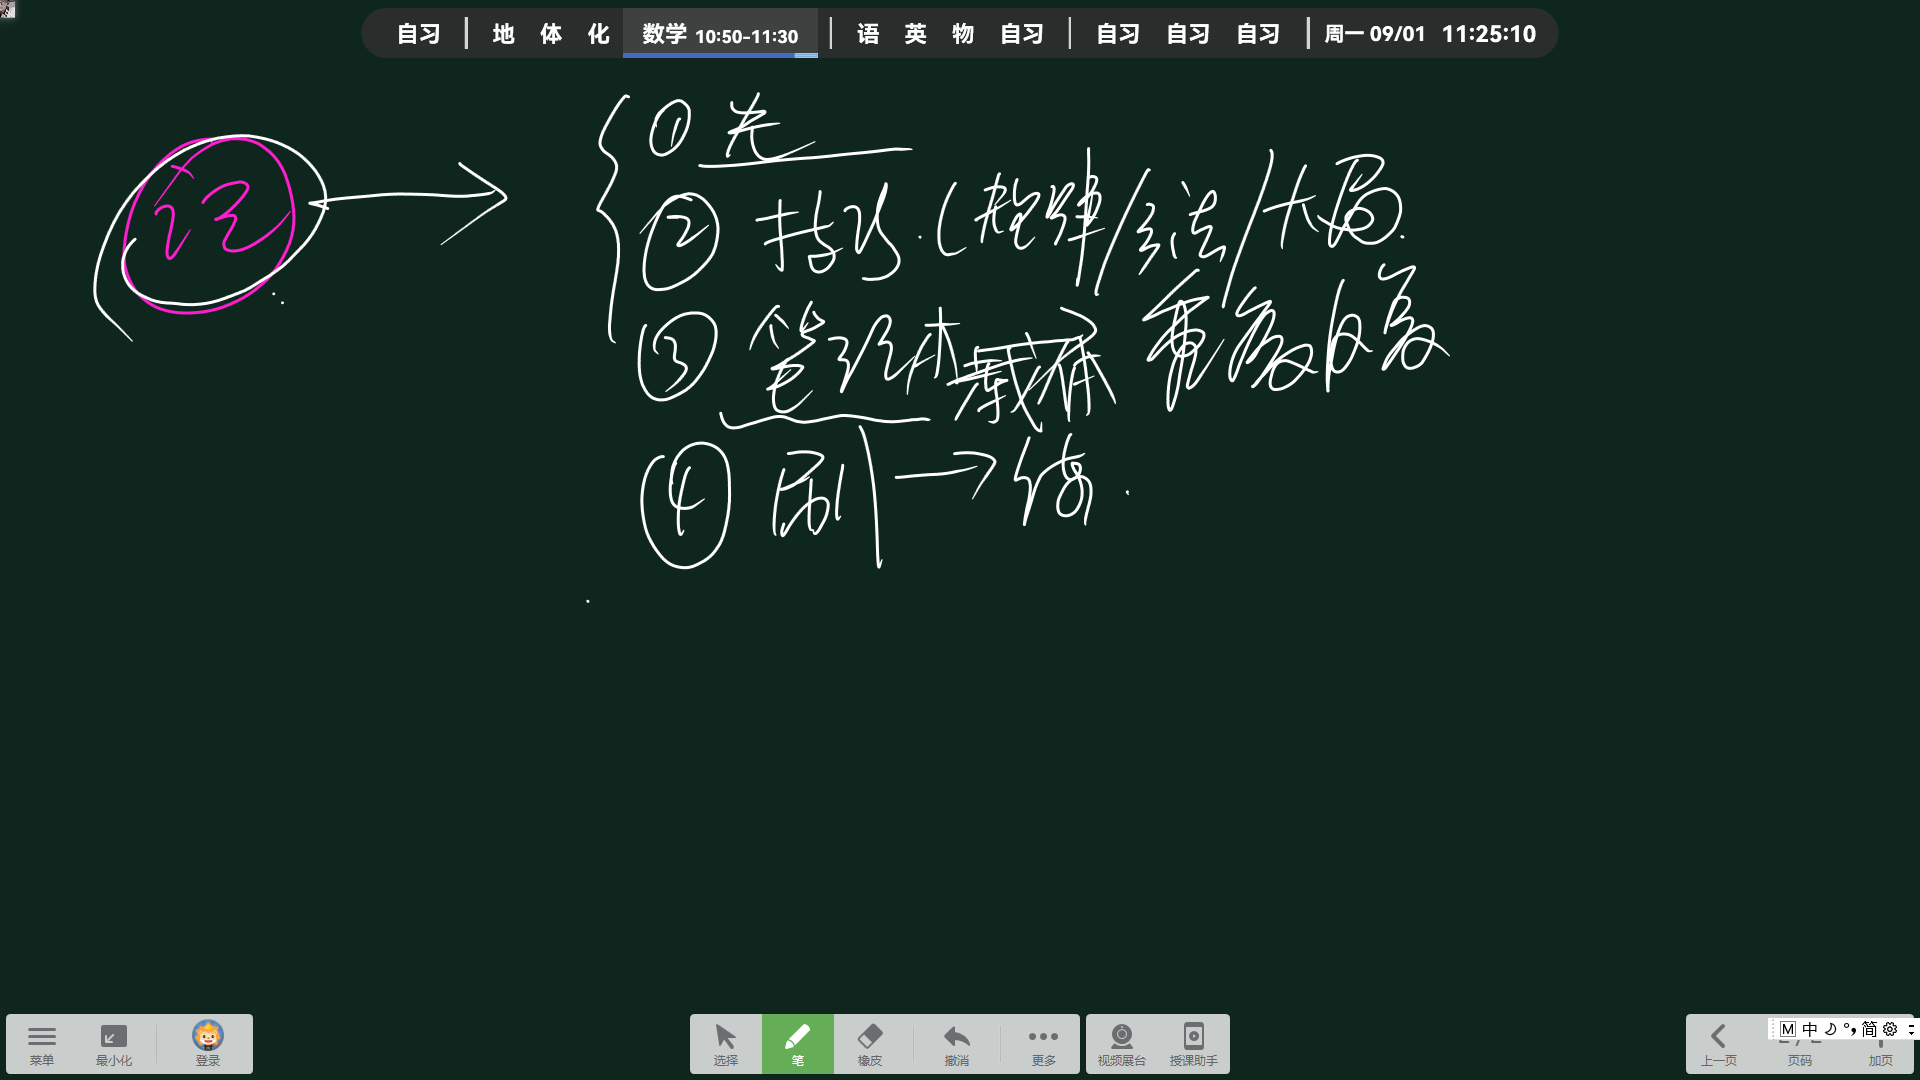 自习 | 地 体 化 数学 10:50-11:30 | 语 英 物 自习 | 自习 自习 自习 | 周一 09/01 11:25:10
记 →
① 先
② 技巧.(规律/方法/大局.
③ 笔记本 载体 重复反复
④ 刷 → 练.
菜单 最小化 登录 选择 笔 橡皮 撤消 更多 视频展台 授课助手 上一页 页码 加页
M 中 简